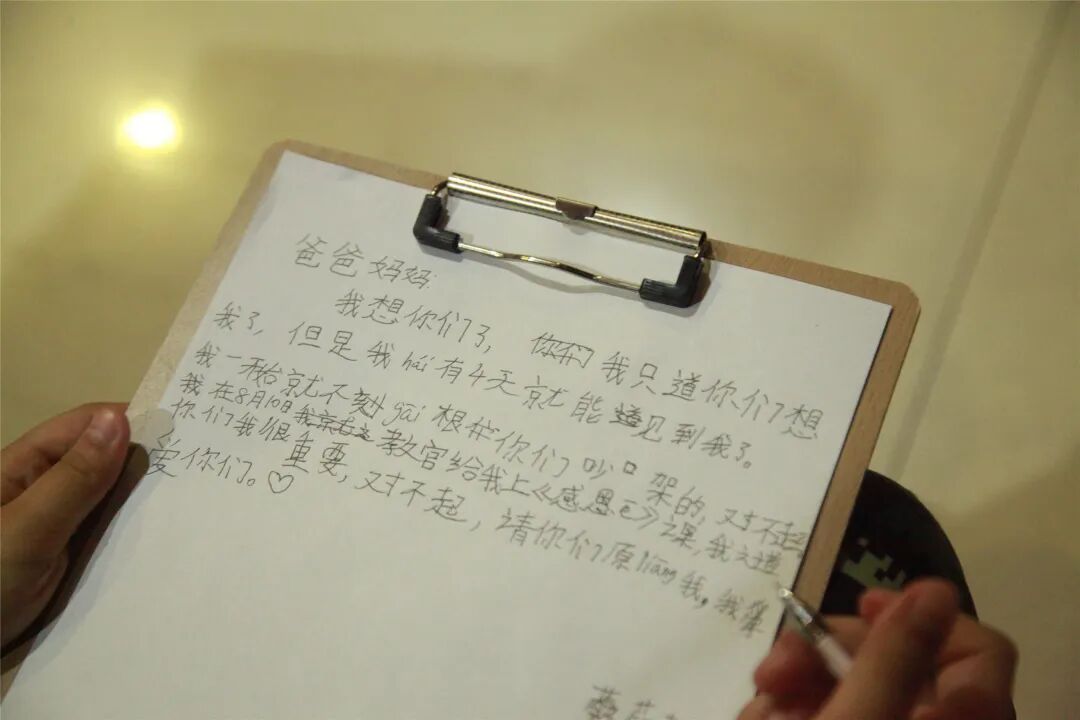 爸爸妈妈:
我想你们了，我只道你们想
我了，但是我hái有4天就能见到我了。
我一开始就不gāi根你们吵架的，对不起
我在8月10日教官给我上《感恩》之课，我之道
你们我很重要，对不起，请你们原liàng我，我
爱你们。♡